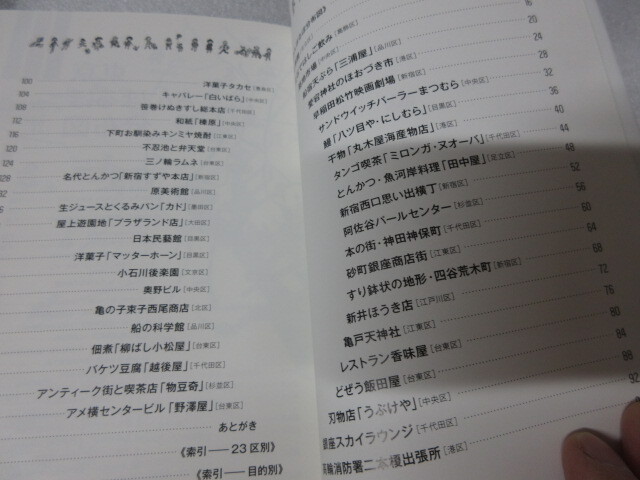 布図》
はしご飲み［葛飾区］ 16
市場［中央区］ 20
天ぷら「三浦屋」［品川区］ 24
愛宕神社のほおづき市［港区］ 28
早稲田松竹映画劇場［新宿区］ 32
サンドウィッチパーラーまつむら［中央区］ 36
鰻「八ツ目や・にしむら」［目黒区］ 40
干物「丸木屋海産物店」［港区］ 44
タンゴ喫茶「ミロンガ・ヌオーバ」［千代田区］ 48
とんかつ・魚河岸料理「田中屋」［足立区］ 52
新宿西口思い出横丁［新宿区］ 56
阿佐谷パールセンター［杉並区］ 60
本の街・神田神保町［千代田区］ 64
砂町銀座商店街［江東区］ 68
すり鉢状の地形・四谷荒木町［新宿区］ 72
新井ほうき店［江戸川区］ 76
亀戸天神社［江東区］ 80
レストラン香味屋［台東区］ 84
どぜう飯田屋［台東区］ 88
刃物店「うぶけや」［中央区］ 92
銀座スカイラウンジ［千代田区］
輪消防署二本榎出張所［港区］
100 洋菓子タカセ［豊島区］
104 キャバレー「白いばら」［中央区］
108 笹巻けぬきすし総本店［千代田区］
112 和紙「榛原」［中央区］
116 下町お馴染みキンミヤ焼酎［江東区］
120 不忍池と弁天堂［台東区］
124 三ノ輪ラムネ［台東区］
28 名代とんかつ「新宿すずや本店」［新宿区］
32 原美術館［品川区］
6 生ジュースとくるみパン「カド」［墨田区］
屋上遊園地「プラザランド店」［大田区］
日本民藝館［目黒区］
洋菓子「マッターホーン」［目黒区］
小石川後楽園［文京区］
奥野ビル［中央区］
亀の子束子西尾商店［北区］
船の科学館［品川区］
佃煮「柳ばし小松屋」［台東区］
バケツ豆腐「越後屋」［千代田区］
アンティーク街と喫茶店「物豆奇」［杉並区］
アメ横センタービル「野澤屋」［台東区］
あとがき
《索引──23区別》
《索引──目的別》